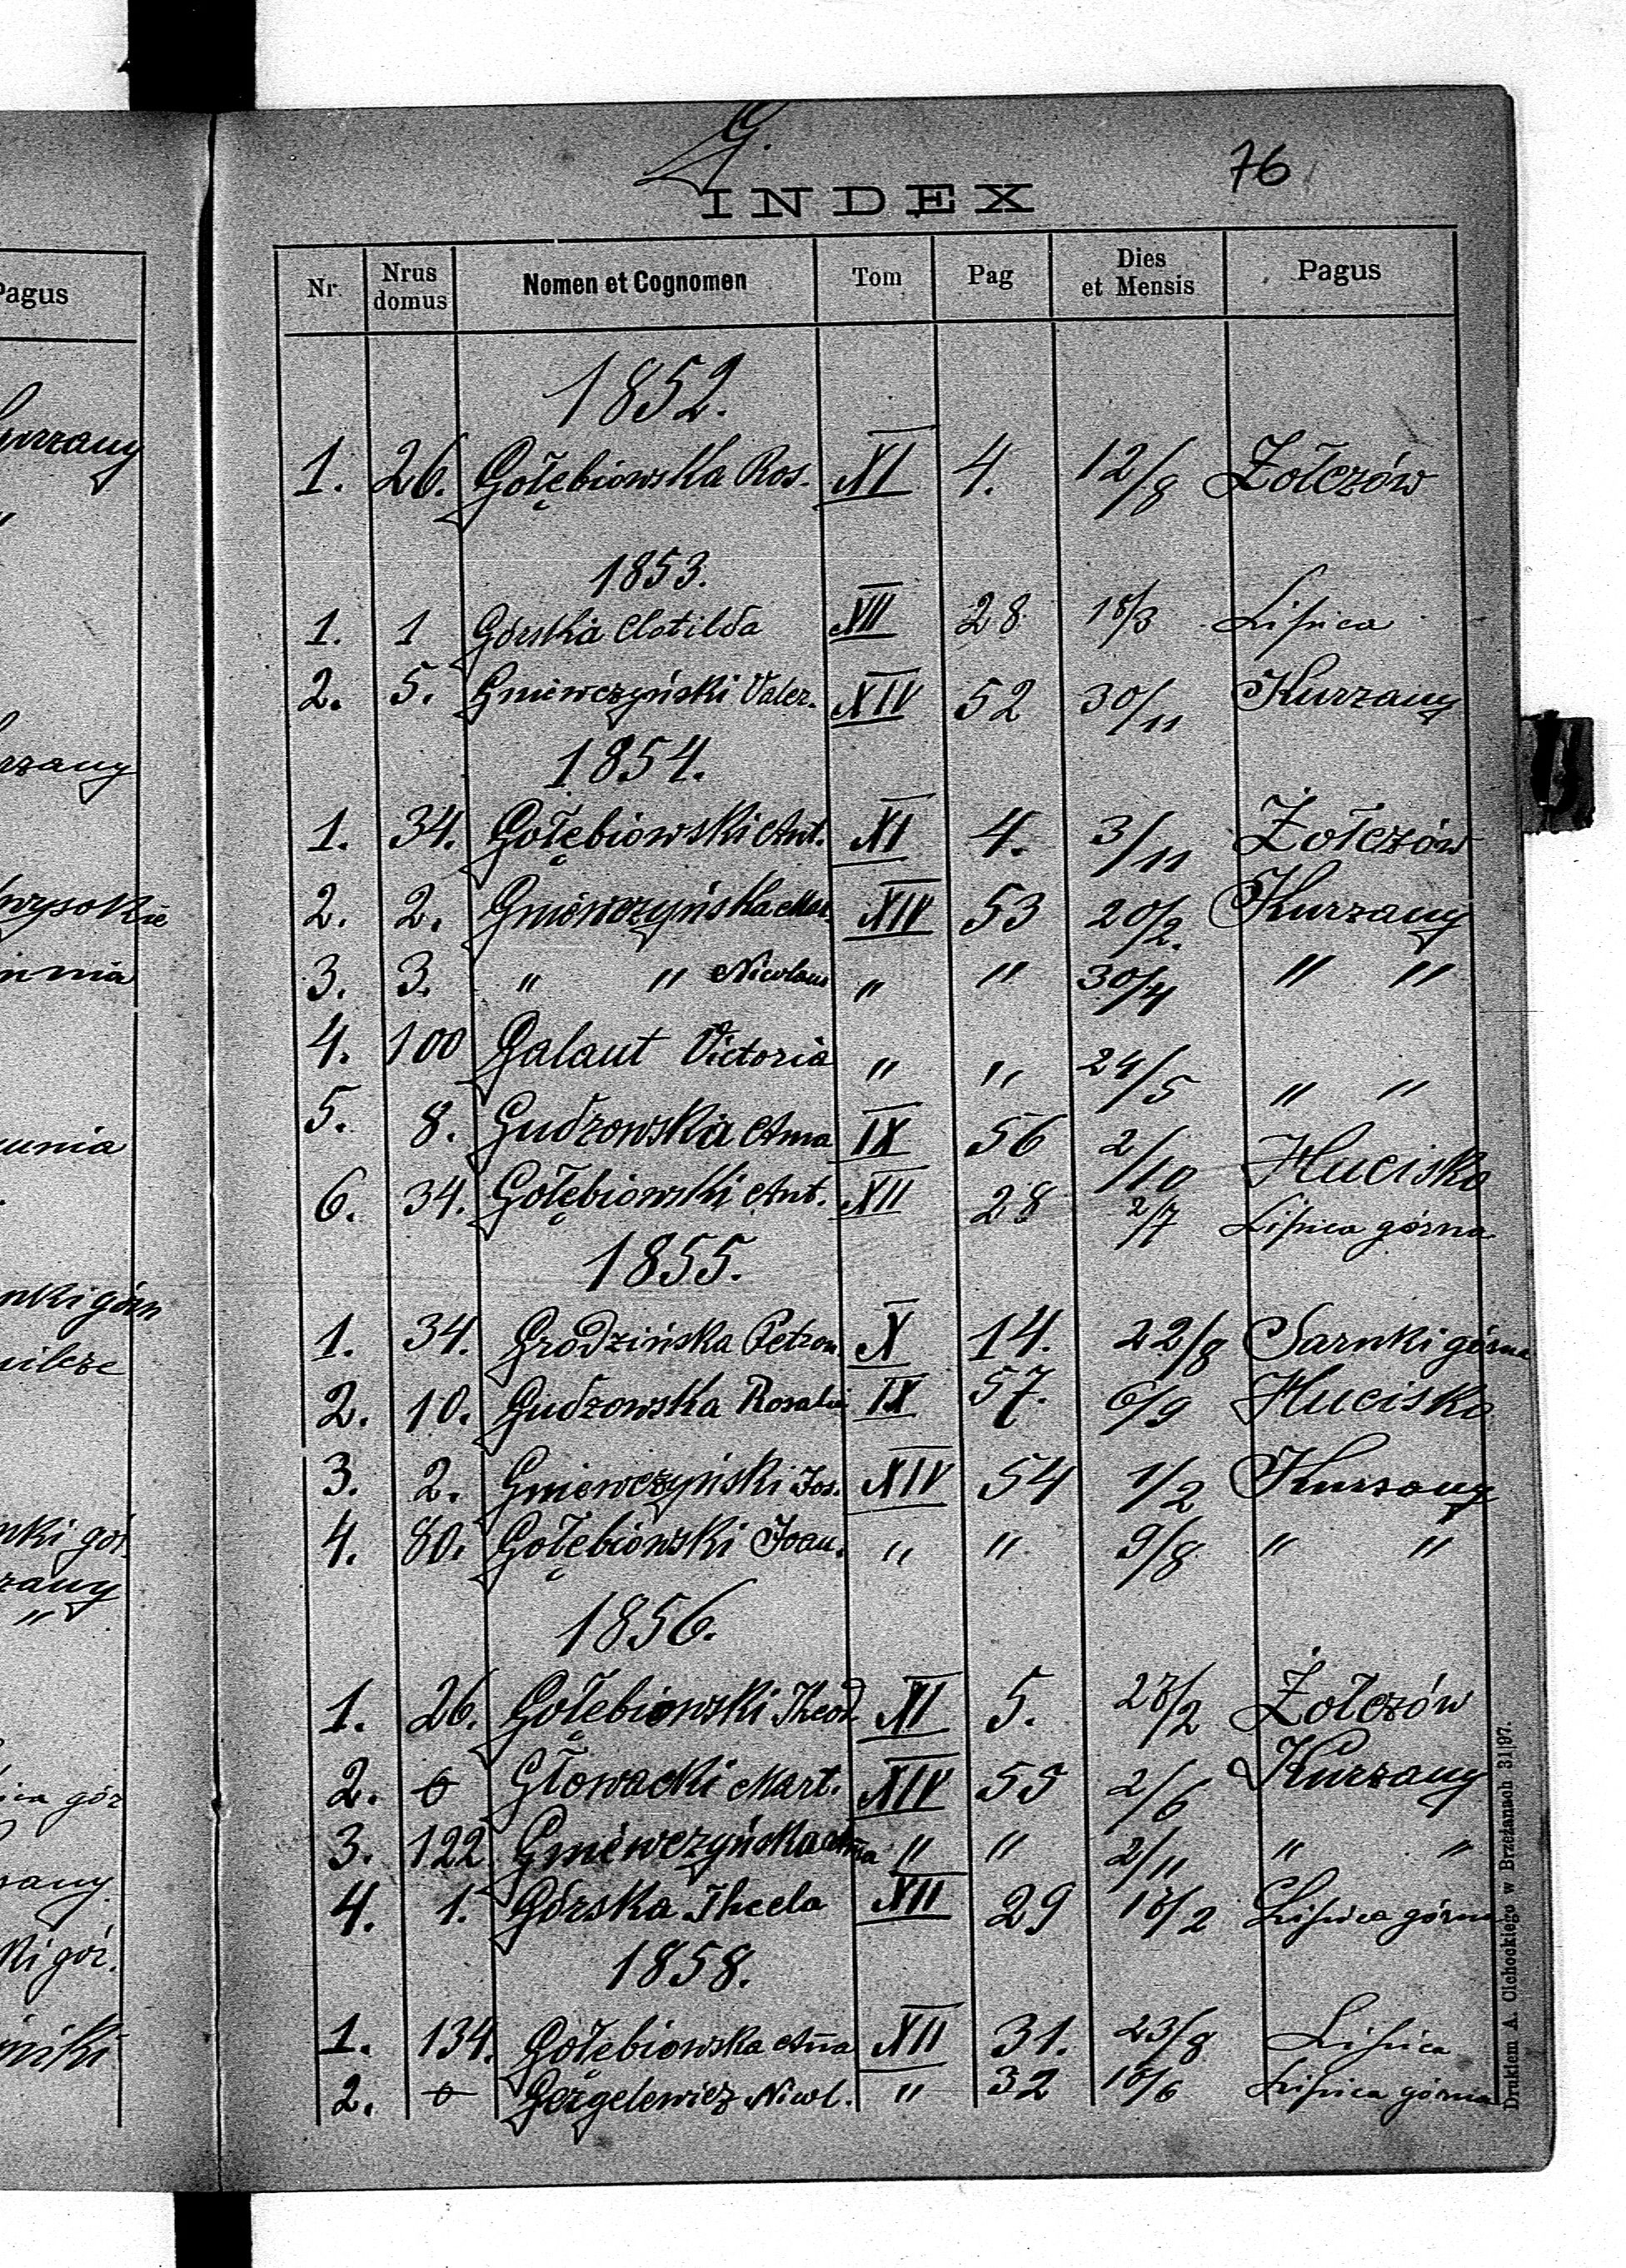 G.
76
INDEX
Pagus
Nr. Nrus domus Nomen et Cognomen Tom Pag Dies et Mensis Pagus
1852.
1. 26. Gołębiowska Ros. XI 4. 12/8 Żołczów
1853.
1. 1 Górska Clotilda XII 28 18/3 Lipica
2. 5. Gniewczyński Valer. XIV 52 30/11 Kurzany
1854.
1. 34. Gołębiowski Ant. XI 4. 3/11 Żołczów
2. 2. Gniewczyńska Mar. XIV 53 20/2. Kurzany
3. 3. " " Nicolaus " " 30/4 " "
4. 100 Galaut Victoria " " 24/5 " "
5. 8. Gudzowska Anna IX 56 2/10 Hucisko
6. 34. Gołębiowski Ant. XII 28 2/7 Lipica górna
1855.
1. 34. Grodzińska Petron. X 14. 22/8 Sarnki górne
2. 10. Gudzowska Rosalia IX 57. 6/9 Hucisko
3. 2. Gniewczyński Jos. XIV 54 1/2 Kurzany
4. 80. Gołębiowski Joan. " " 9/8 " "
1856.
1. 26. Gołębiowski Theod. XI 5. 28/2 Żołczów
2. 0 Głowacki Mart. XIV 55 2/6 Kurzany
3. 122 Gniewczyńska Anna " " 2/11 " "
4. 1. Górska Thecla XII 29 18/2 Lipica górna
1858.
1. 134. Gołębiowska Ana XII 31. 23/8 Lipica
2. 0 Gergelewicz Nicol. " 32 10/6 Lipica górna
Drukiem A. Olchockiego w Brzeżanach 31|97.